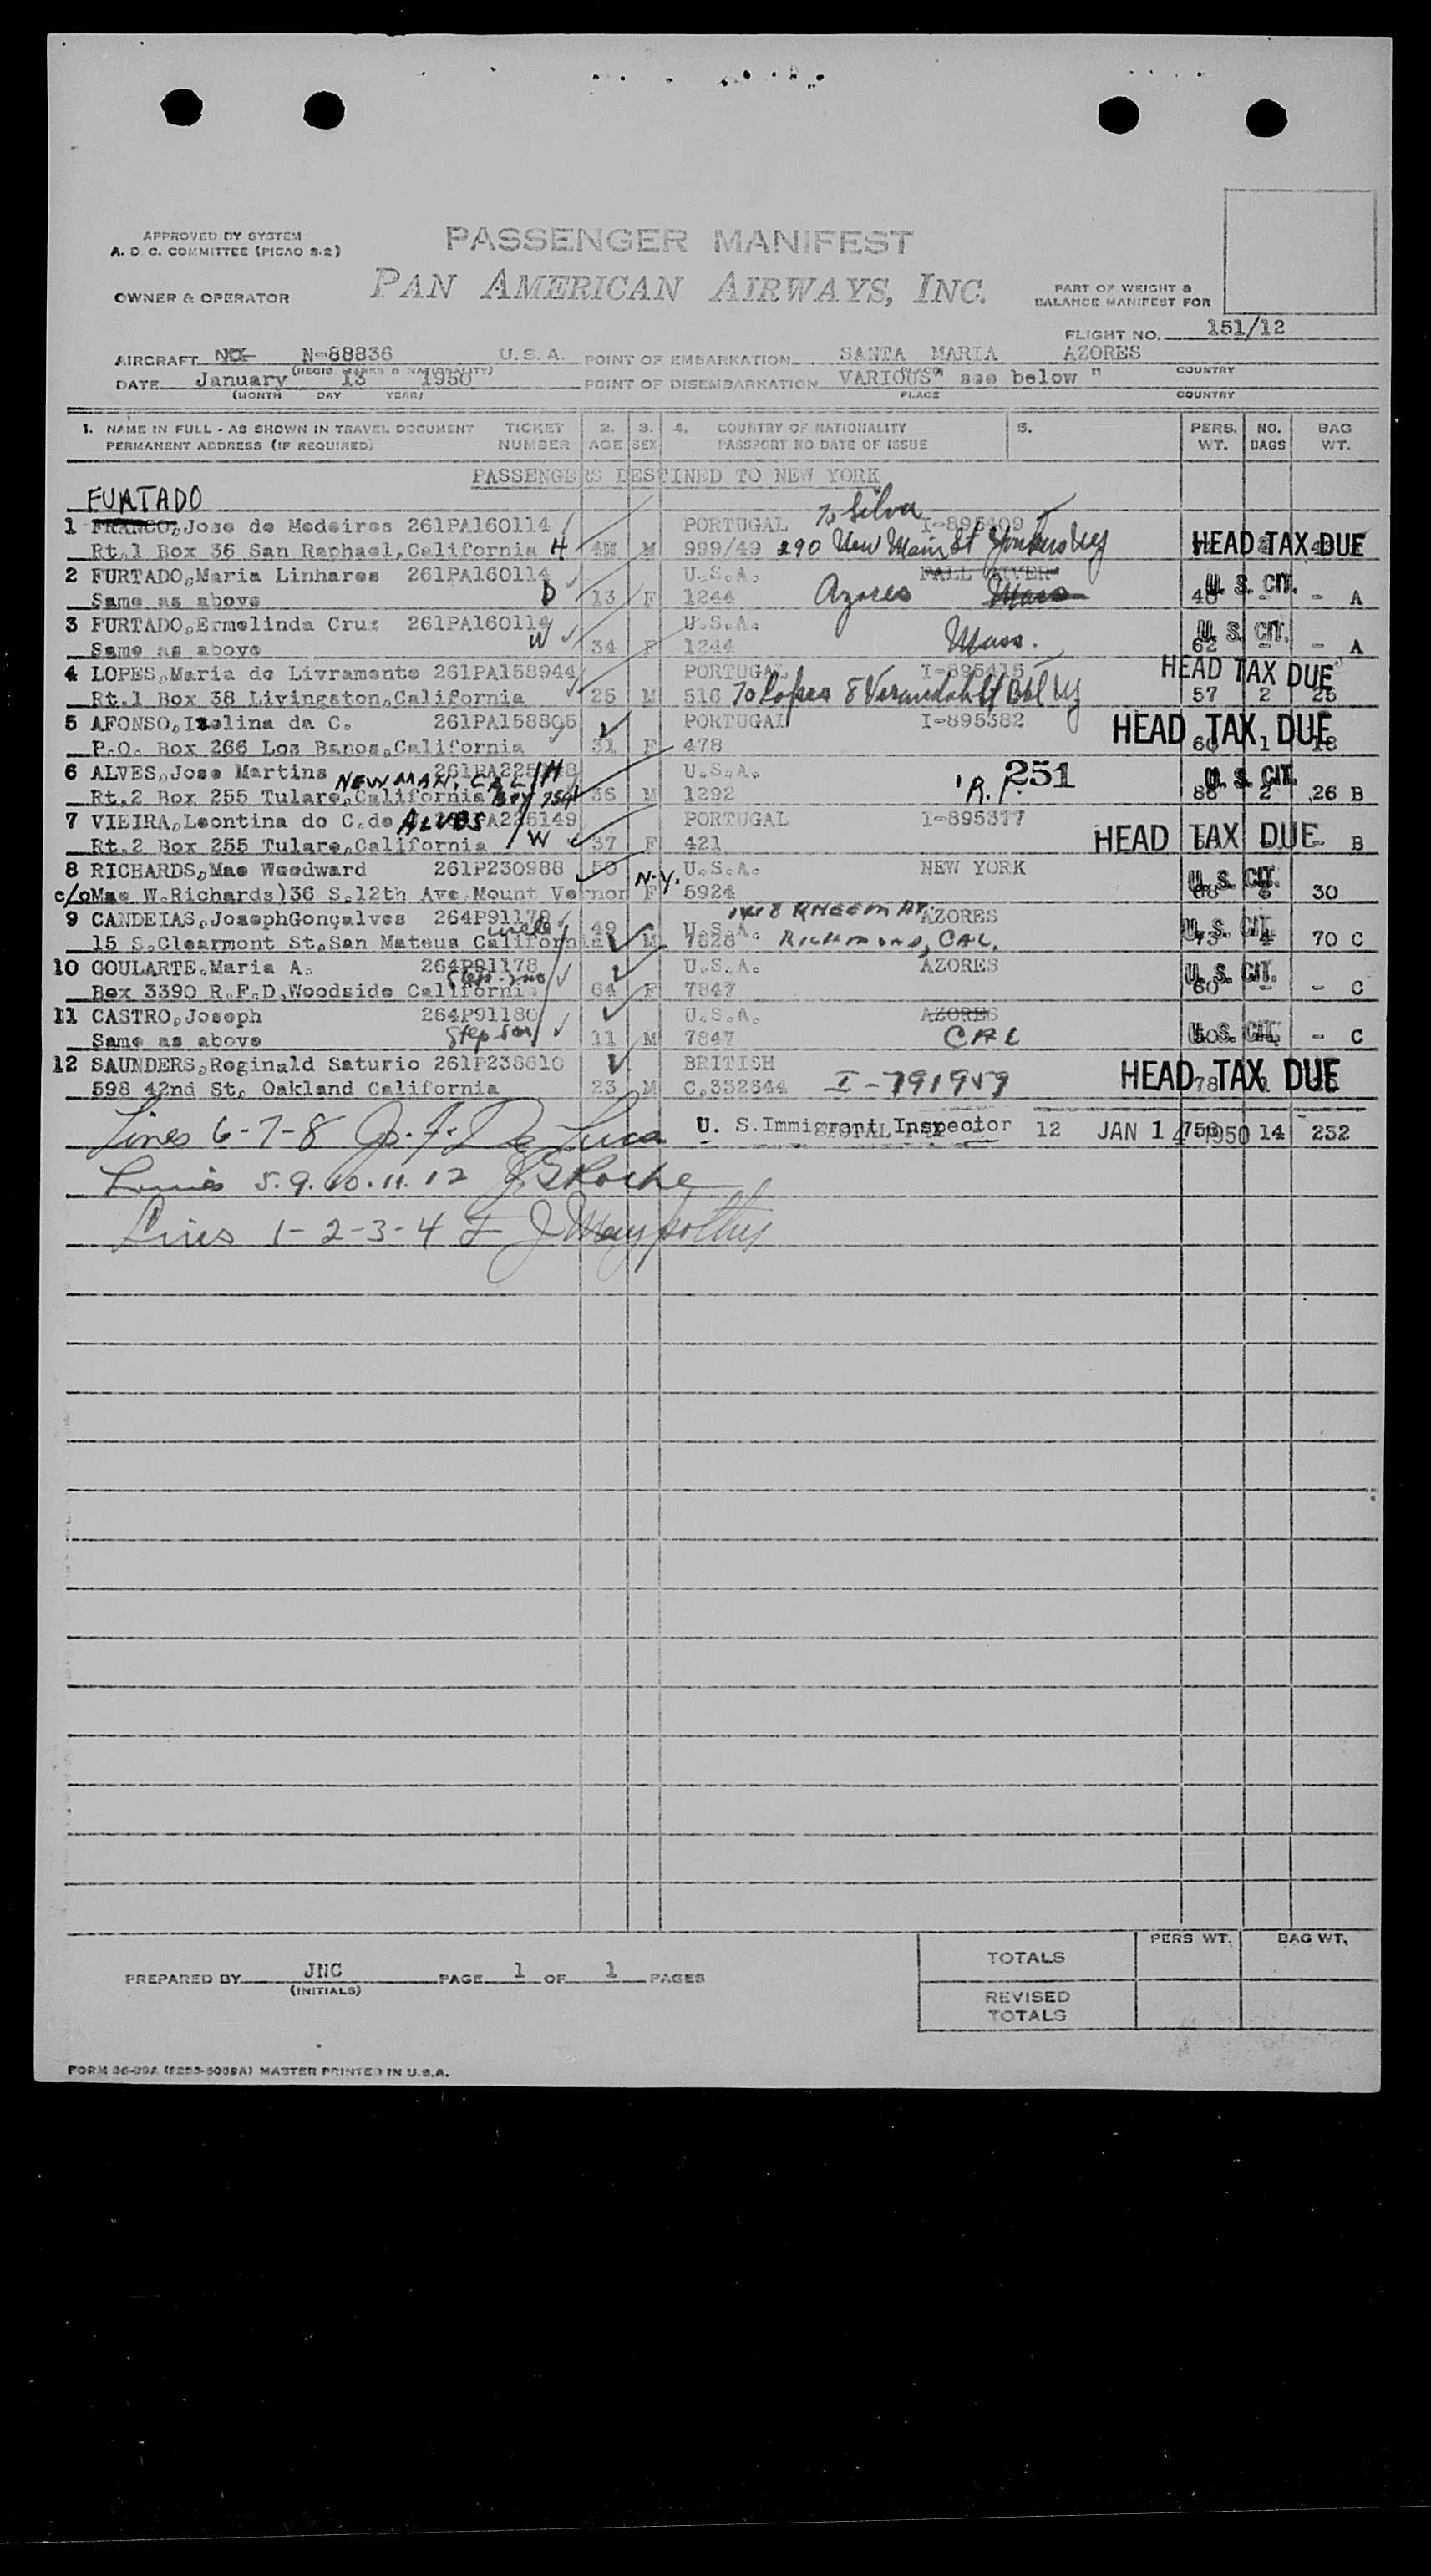 APPROVED BY SYSTEM
A. D. C. COMMITTEE (PICAO S-2)
PASSENGER MANIFEST
PAN AMERICAN AIRWAYS, INC.
OWNER & OPERATOR
PART OF WEIGHT &
BALANCE MANIFEST FOR
FLIGHT NO. 151/12
AIRCRAFT N-88836 U.S.A. POINT OF EMBARKATION SANTA MARIA AZORES
(REGIS. MARKS & NATIONALITY) PLACE COUNTRY
DATE January 13 1950 POINT OF DISEMBARKATION VARIOUS" see below "
(MONTH DAY YEAR) PLACE COUNTRY
1. NAME IN FULL - AS SHOWN IN TRAVEL DOCUMENT TICKET 2. 3. 4. COUNTRY OF NATIONALITY 5. PERS. NO. BAG
PERMANENT ADDRESS (IF REQUIRED) NUMBER AGE SEX PASSPORT NO DATE OF ISSUE WT. BAGS WT.
PASSENGERS DESTINED TO NEW YORK
FURTADO
1 FRANCO,Jose de Medeiros 261PA160114 PORTUGAL To Silva I-895409
Rt.1 Box 36 San Raphael,California H M 999/49 290 New Main St Yonkers NY HEAD TAX DUE
2 FURTADO,Maria Linhares 261PA160114 U.S.A. FALL RIVER U. S. CIT.
Same as above D 13 F 1244 Azores Mass 40 - - A
3 FURTADO,Ermelinda Cruz 261PA160114 U.S.A. U. S. CIT.
Same as above W 34 F 1244 Mass. 62 - - A
4 LOPES,Maria de Livramento 261PA158944 PORTUGAL I-895415 HEAD TAX DUE
Rt.1 Box 38 Livingston,California 25 M 516 To Lopes 8 Verandah 57 2 25
5 AFONSO,Izolina da C. 261PA158805 PORTUGAL I-895382 HEAD TAX DUE
P.O. Box 266 Los Banos,California 31 F 478 60 1 18
6 ALVES,Jose Martins H U.S.A. 251 U. S. CIT.
NEWMAN, CAL
Rt.2 Box 255 Tulare,California Box 754 36 M 1292 R.P. 88 2 26 B
7 VIEIRA,Leontina do C.de ALVES PA225149 PORTUGAL I-895377 HEAD TAX DUE
Rt.2 Box 255 Tulare,California W 37 F 421 - B
8 RICHARDS,Mae Woodward 261P230988 50 U.S.A. NEW YORK U. S. CIT.
c/oMae W.Richards)36 S.12th Ave.Mount Vernon N.Y. F 5924 68 30
9 CANDEIAS,JosephGonçalves 264P91178 49 U.S.A. 1418 RHEEM AV. AZORES U. S. CIT.
uncle
15 S.Clearmont St.San Mateus California M 7828 RICHMOND, CAL. 73 4 70 C
10 GOULARTE.Maria A. 264P91178 U.S.A. AZORES U. S. CIT.
Box 3390 R.F.D.Woodside California 64 F 7847 60 - - C
11 CASTRO,Joseph 264P91180 U.S.A. AZORES
Same as above Step son 11 M 7847 CAL U. S. CIT. - C
12 SAUNDERS,Reginald Saturio 261P238610 BRITISH HEAD TAX DUE
598 42nd St. Oakland California 23 M C.332644 I-791959 78 1
Lines 6-7-8 Jos. F. De Luca U. S.Immigrant Inspector 12 JAN 14 1950 750 14 232
Lines 5.9.10.11.12 Roche
Lines 1-2-3-4
PREPARED BY JNC PAGE 1 OF 1 PAGES
(INITIALS)
PERS WT. BAG WT.
TOTALS
REVISED
TOTALS
FORM 36-99A MASTER PRINTED IN U.S.A.